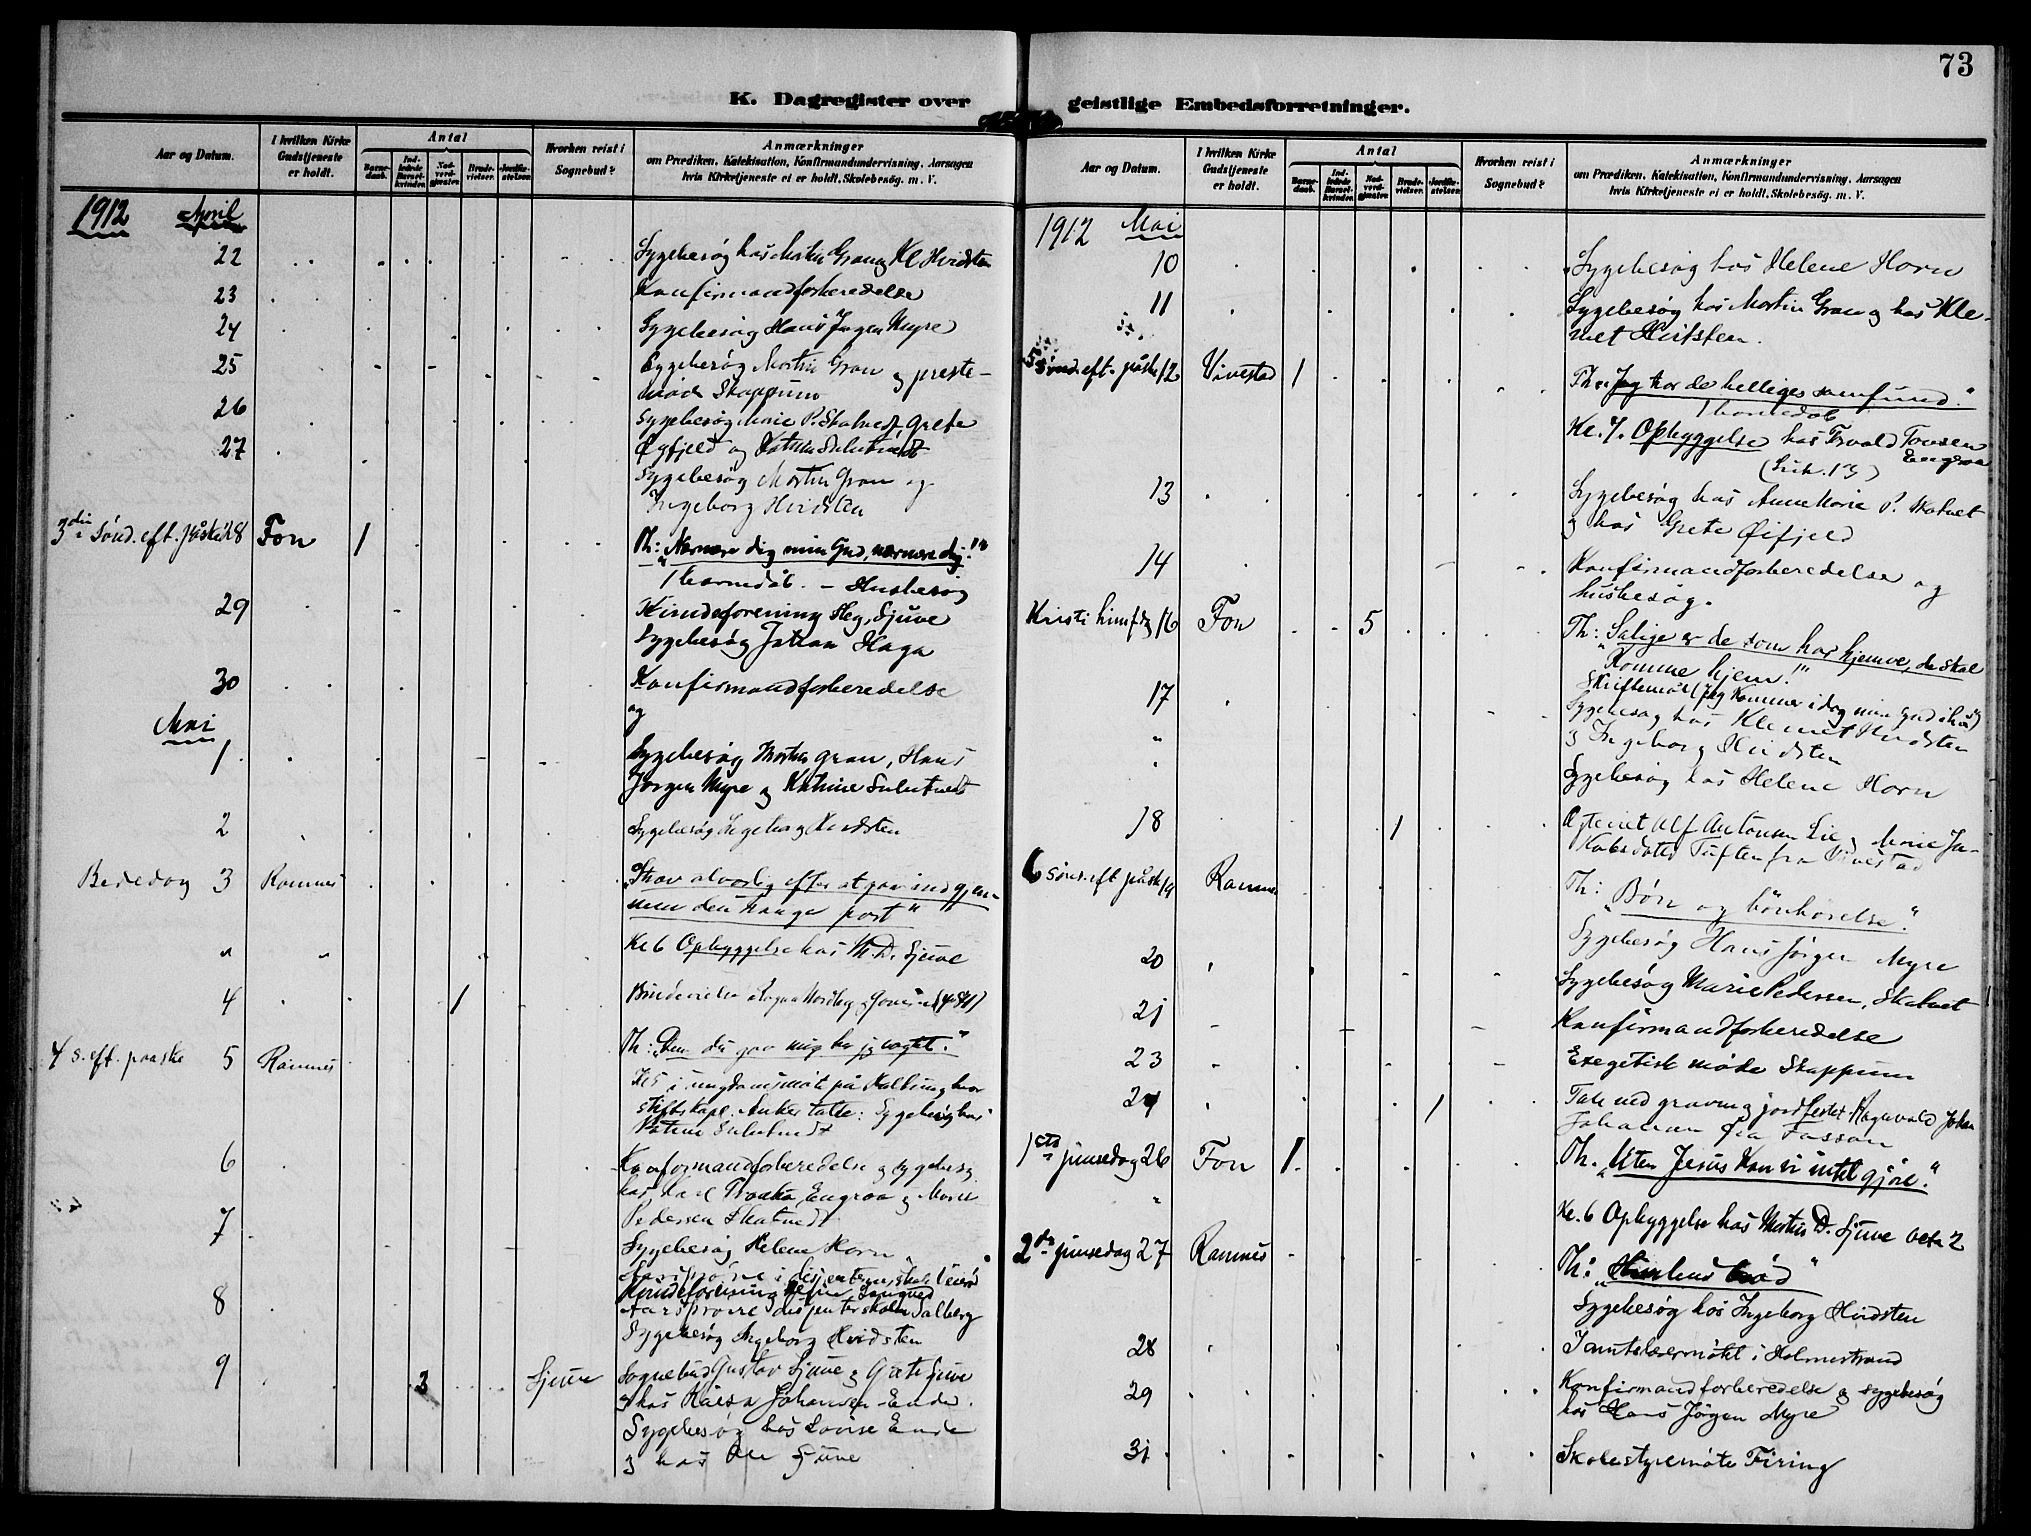 73
K. Dagregister over geistlige Embedsforretninger.
Aar og Datum.
I hvilken Kirke Gudstjeneste er holdt.
Antal
Barnedaab.
Indledede Barselkvinder.
Nadverdgjæster.
Brudevielser.
Jordfæstelser.
Hvorhen reist i Sognebud?
Anmærkninger
om Prædiken, Katekisation, Konfirmandundervisning, Aarsagen
hvis Kirketjeneste ei er holdt, Skolebesøg. m. V.
1912 April
22 Sygebesøg hos Martin Gran og Kl Hvidsten
23 Konfirmandforberedelse
24 Sygebesøg Hans Jørgen Myre
25 Sygebesøg Martin Gran og preste-
møde Skoppum
26 Sygebesøg Marie P. Skatvedt, Grete
Øyfjeld og Katrine
27 Sygebesøg Martin Gran og
Ingeborg Hvidsten
3die Sønd. eft. påske 28 Fon 1 Th: "Nærmere dig min Gud, nærmere dig!"
1 barnedåb. – Husbesøg
29 Kvindeforening Heg, Sjuve
Sygebesøg Johan Haga
30 Konfirmandforberedelse
og
Mai
1 Sygebesøg Martin Gran, Hans
Jørgen Myre og Katrine
2 Sygebesøg Ingeborg Hvidsten
Bededag 3 Ramnes "Stræv alvorlig efter at gaa ind gjen-
nem den trange port"
" " Kl 6 Opbyggelse hos M. D. Sjuve
4 1 Brudevielse
4 s. eft. paaske 5 Ramnes Th: "Den du gav mig har jeg vogtet."
Kl 5 ungdomsmøte på
talte: Sygebesøg hos
Katrine
6 Konfirmandforberedelse og sygebesøg
hos Engroa og Marie
Pedersen Skatvedt
7 Sygebesøg Helene Horn
i
Kvindeforening
8 Aarsprøve Salberg
Sygebesøg Ingeborg Hvidsten
9 3 Sjuve Sognebud Gustav Sjuve og Grete Sjuve
og hos Johansen Ende.
Sygebesøg hos Lovise Ende
og hos Ole Sjuve
Aar og Datum.
I hvilken Kirke Gudstjeneste er holdt.
Antal
Barnedaab.
Indledede Barselkvinder.
Nadverdgjæster.
Brudevielser.
Jordfæstelser.
Hvorhen reist i Sognebud?
Anmærkninger
om Prædiken, Katekisation, Konfirmandundervisning, Aarsagen
hvis Kirketjeneste ei er holdt, Skolebesøg. m. V.
1912 Mai
10 Sygebesøg hos Helene Horn
11 Sygebesøg hos Martin Gran og hos Kle-
met Hvitsten.
5 Sønd. eft. påske 12 Vivestad 1 Th: "Jeg tror de helliges samfund."
1 barnedåb
Kl. 7. Opbyggelse hos Engroa
(Luk. 13)
13 Sygebesøg hos Anne Marie P. Skatvet
og hos Grete Øifjeld
14 Konfirmandforberedelse og
husbesøg.
Kristi himfdg 16 Fon 5 Th: "Salige er de som har hjemve, de skal
komme hjem!"
Skriftemål (Jeg kommer i dag min Gud i hu)
17 Sygebesøg hos Klemet Hvidsten
og Ingeborg Hvidsten
" Sygebesøg hos Helene Horn
18 1 Alf Antonsen Lie og Marie Ja-
kobsdatter Tuften fra Vivestad
6 sønd. eft påske 19 Ramnes Th: "Bøn og bönhørelse."
20 Sygebesøg Hans Jørgen Myre
Sygebesøg Marie Pedersen, Skatvet
21 Konfirmandforberedelse
23 Exegetisk møde Skoppum
24 1 Tale ved graven og jordfestet Ragnvald Johan
Johansen fra Fossan
1ste pinsedag 26 Fon 1 Th. "Uten Jesus kan vi intet gjöre."
" Kl. 6 Opbyggelse hos Martin D. Sjuve
2de pinsedag 27 Ramnes Th: "Himlens brød"
Sygebesøg hos Ingeborg Hvidsten
28 i Holmestrand
29 Konfirmandforberedelse og sygebesøg
hos Hans Jørgen Myre
31 Skolestyremøte Firing